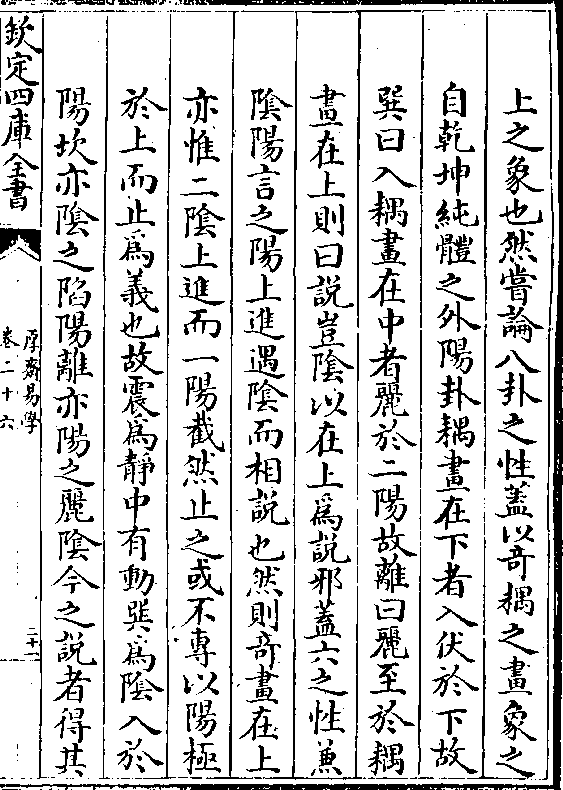 上之象也然嘗論八卦之性蓋以奇耦之畫象之
自乾坤純體之外陽卦耦畫在下者入伏於下故
巽曰入耦畫在中者麗於二陽故離曰麗至於耦
畫在上則曰説豈陰以在上爲説邪蓋六之性兼
陰陽言之陽上進遇陰而相説也然則奇畫在上
亦惟二陰上進而一陽截然止之或不專以陽極
於上而止爲義也故震爲靜中有動巽爲陰入於
陽坎亦陰之陷陽離亦陽之麗陰今之説者得其
欽定四庫全書
厚齋易學
卷二十六
二十一